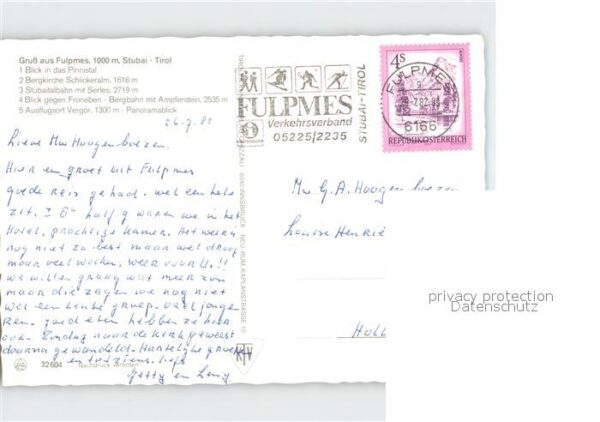 Gruß aus Fulpmes, 1000 m, Stubai · Tirol
1 Blick in das Pinnistal
2 Bergkirche Schlickeralm, 1616 m
3 Stubaitalbahn mit Serles, 2719 m
4 Blick gegen Froneben - Bergbahn mit Ampferstein, 2535 m
5 Ausflugsort Vergör, 1300 m · Panoramablick
26-7-82
Lieve Mw Hoogenboezem.
Hier een groet uit Fulpmes
goede reis gehad. wel een hele
zit. half 9 waren we in het
Hotel, prachtige kamer. Het weer is
nog niet zo best maar wel droog
maar veel wolken. weer voor U.!!
we willen graag wat meer zon
maar die zagen we nog niet
wel een leuke groep. veel jongeren
eten hebben ze hier
ook Zondag naar de kerk geweest
daarna gewandeld. Hartelijke groeten
en tot ziens. liefs
Jetty en Leny
32604 Nachdruck verboten
6040 INNSBRUCK NEU-RUM, KAPLANSTRASSE
KTV
FULPMES
Verkehrsverband
05225/2235
STUBAI-TIROL
4S
REPUBLIK ÖSTERREICH
FULPMES
6166
Mw G. A. Hoogenboezem
Louise Henrië
Holl
privacy protection
Datenschutz